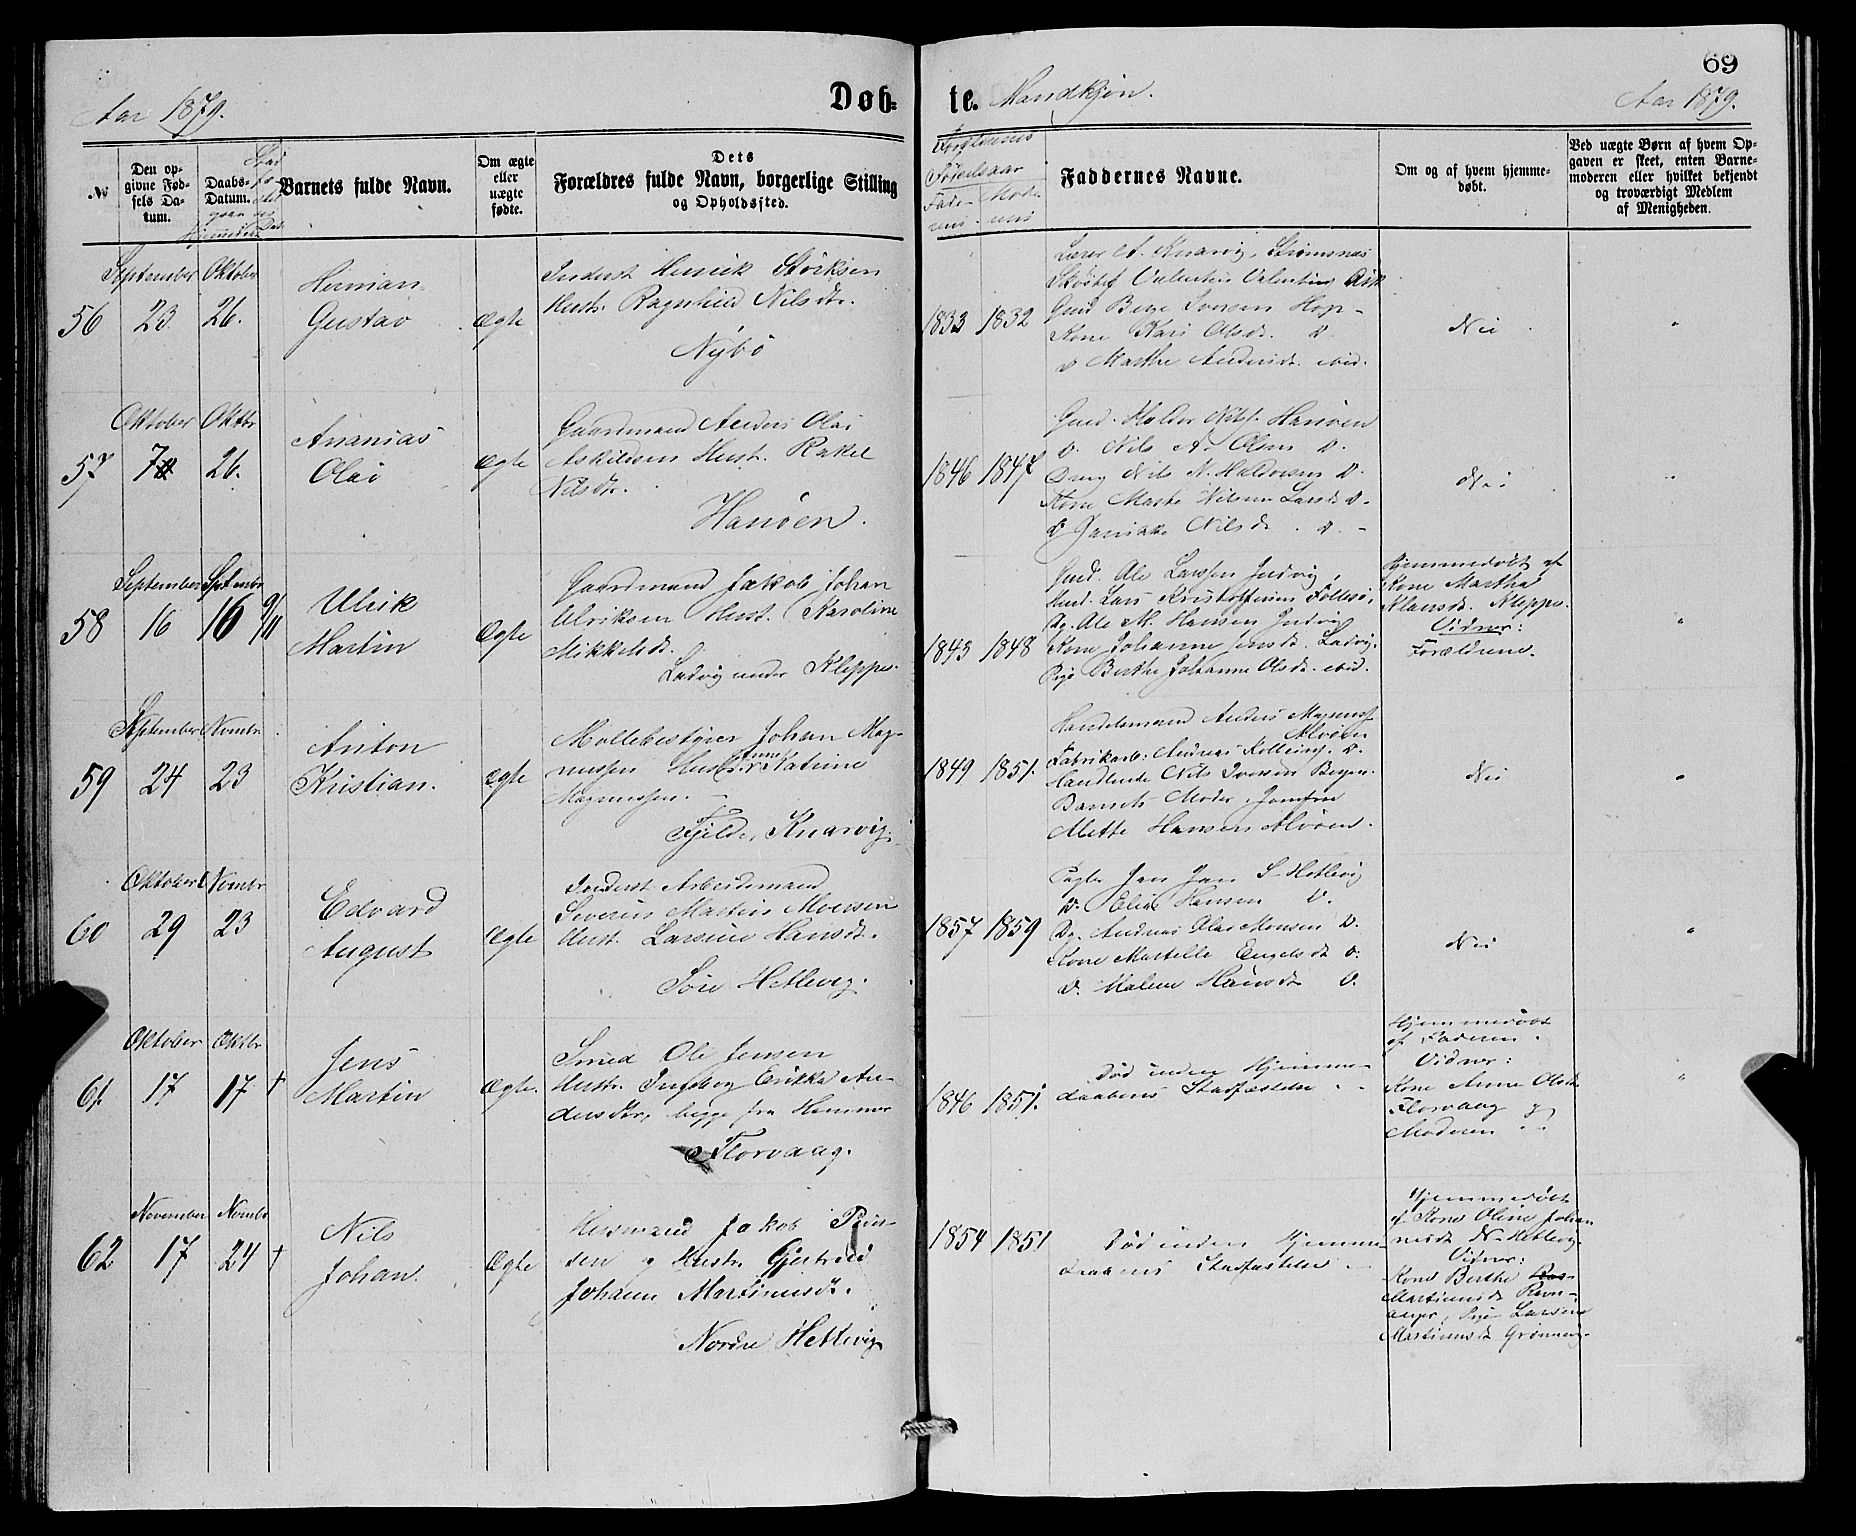 69
Aar 1879.
Døb-
te. Mandkjøn.
Aar 1879.
№
Den op-
givne Fød-
sels Da-
tum.
Daabs-
Datum.
Barnets fulde Navn.
Om ægte
eller
uægte
fødte.
Dets
Forældres fulde Navn, borgerlige Stilling
og Opholdssted.
Forældrenes
Fødselsaar
Fade-
rens
Mode-
rens
Faddernes Navne.
Om og af hvem hjemme-
døbt.
Ved uægte Børn af hvem Op-
gaven er skeet, enten Barne-
moderen eller hvilket bekjendt
og troværdigt Medlem
af Menigheden.
56
September
23
Oktober
26.
Herman
Gustav
Ægte
Inderst Henrik Störksen
Hustr. Ragnhild Nilsdtr.
Nybö
1833 1832
Lærer A. Knarvig, Strømsnæs
Valentin Valentins Ask
Gmd Berge Iversen Hop-
Kone Kari Olsdt. D.
D Marthe Andersdt. ibid.
Nei
57
Oktober
7
Oktbr
26.
Ananias
Olai
Ægte
Gaardmand Anders Olai
Askildsen Hust. Rakel
Nilsdtr.
Hanöen.
1846 1847
Gmd. Halvor Nils. Hanöen
D. Nils A. Olsen D.
Dreng Nils N. Haldorsen D.
Kone Marte Nilsen Larsdt D.
D. Nilsdt. D.
Nei
58
September
16
Septembr
16 9/11
Ulrik
Martin
Ægte
Gaardmand Jakob Johan
Ulriksen Hust. Karoline
Mikkelsdt.
Ladvig under Kleppe.
1843 1848
Gmd. Ole Larssen Judvig
Lars Kristoffersen Follesø,
Ole M. Hansen Judvig
Kone Johanne Jensdt. Ladvig.
Pige Berthe Johanne Olsdt. ibid.
Hjemmedöbt af
Kone Martha
Klausdt. Kleppe.
Vidner:
Forældrene.
59
September
24
Novmbr
23
Anton
Kristian.
Ægte
Møllebestyrer Johan Mag-
nussen Hust. Katrine
Magnussen.
Fjeldr. Knarvig.
1849 1851.
Handelsmand Anders Magnuss.
Alvøen
Fabrikarb. Andreas D.
Handlende Nils Iversen Bergen.
Barnets Moder, Jomfru
Mette Hansen Alvøen.
Nei
60
Oktober
29
Novmbr
23
Edvard
August
Ægte
Inderst Arbeidsmand
Severin Martin Monsen
Hust. Larsine Hansdt.
Söre Hetlevig.
1857 1859
Jan Jan S Hetlevig
D. Elias Hansen D.
Dg. Andreas Olai Monsen D.
Kone Martelle Engelsdt D.
D. Malene Hansdt D.
Nei
61
Oktober
17
Oktbr
17 †
Jens
Martin
Ægte.
Smed Ole Jensen
Hustr. Ingeborg Erikka An-
dersdtr, begge fra Hammer
Florvaag.
1846 1851.
Død inden Hjemme-
daabens Stadfæstelse
Hjemmedöbt
af Faderen.
Vidner:
Kone Anne Olsdt.
Florvaag og
Moderen
62
November
17
Novmbr
24 †
Nils
Johan.
Ægte
Husmand Jakob
sen og Hustr. Gjertrud
Johanne Martinusdt.
Nordre Hetlevig
1854 1851
Død inden Hjemme-
daabens Stadfæstelse
Hjemmedöbt
af Kone Oline Johan
nesdt N. Hetlevig.
Vidner:
Kone Berthe
Martinusdt Ravn-
anger, Pige Larsine
Martinusdt Grönnev.